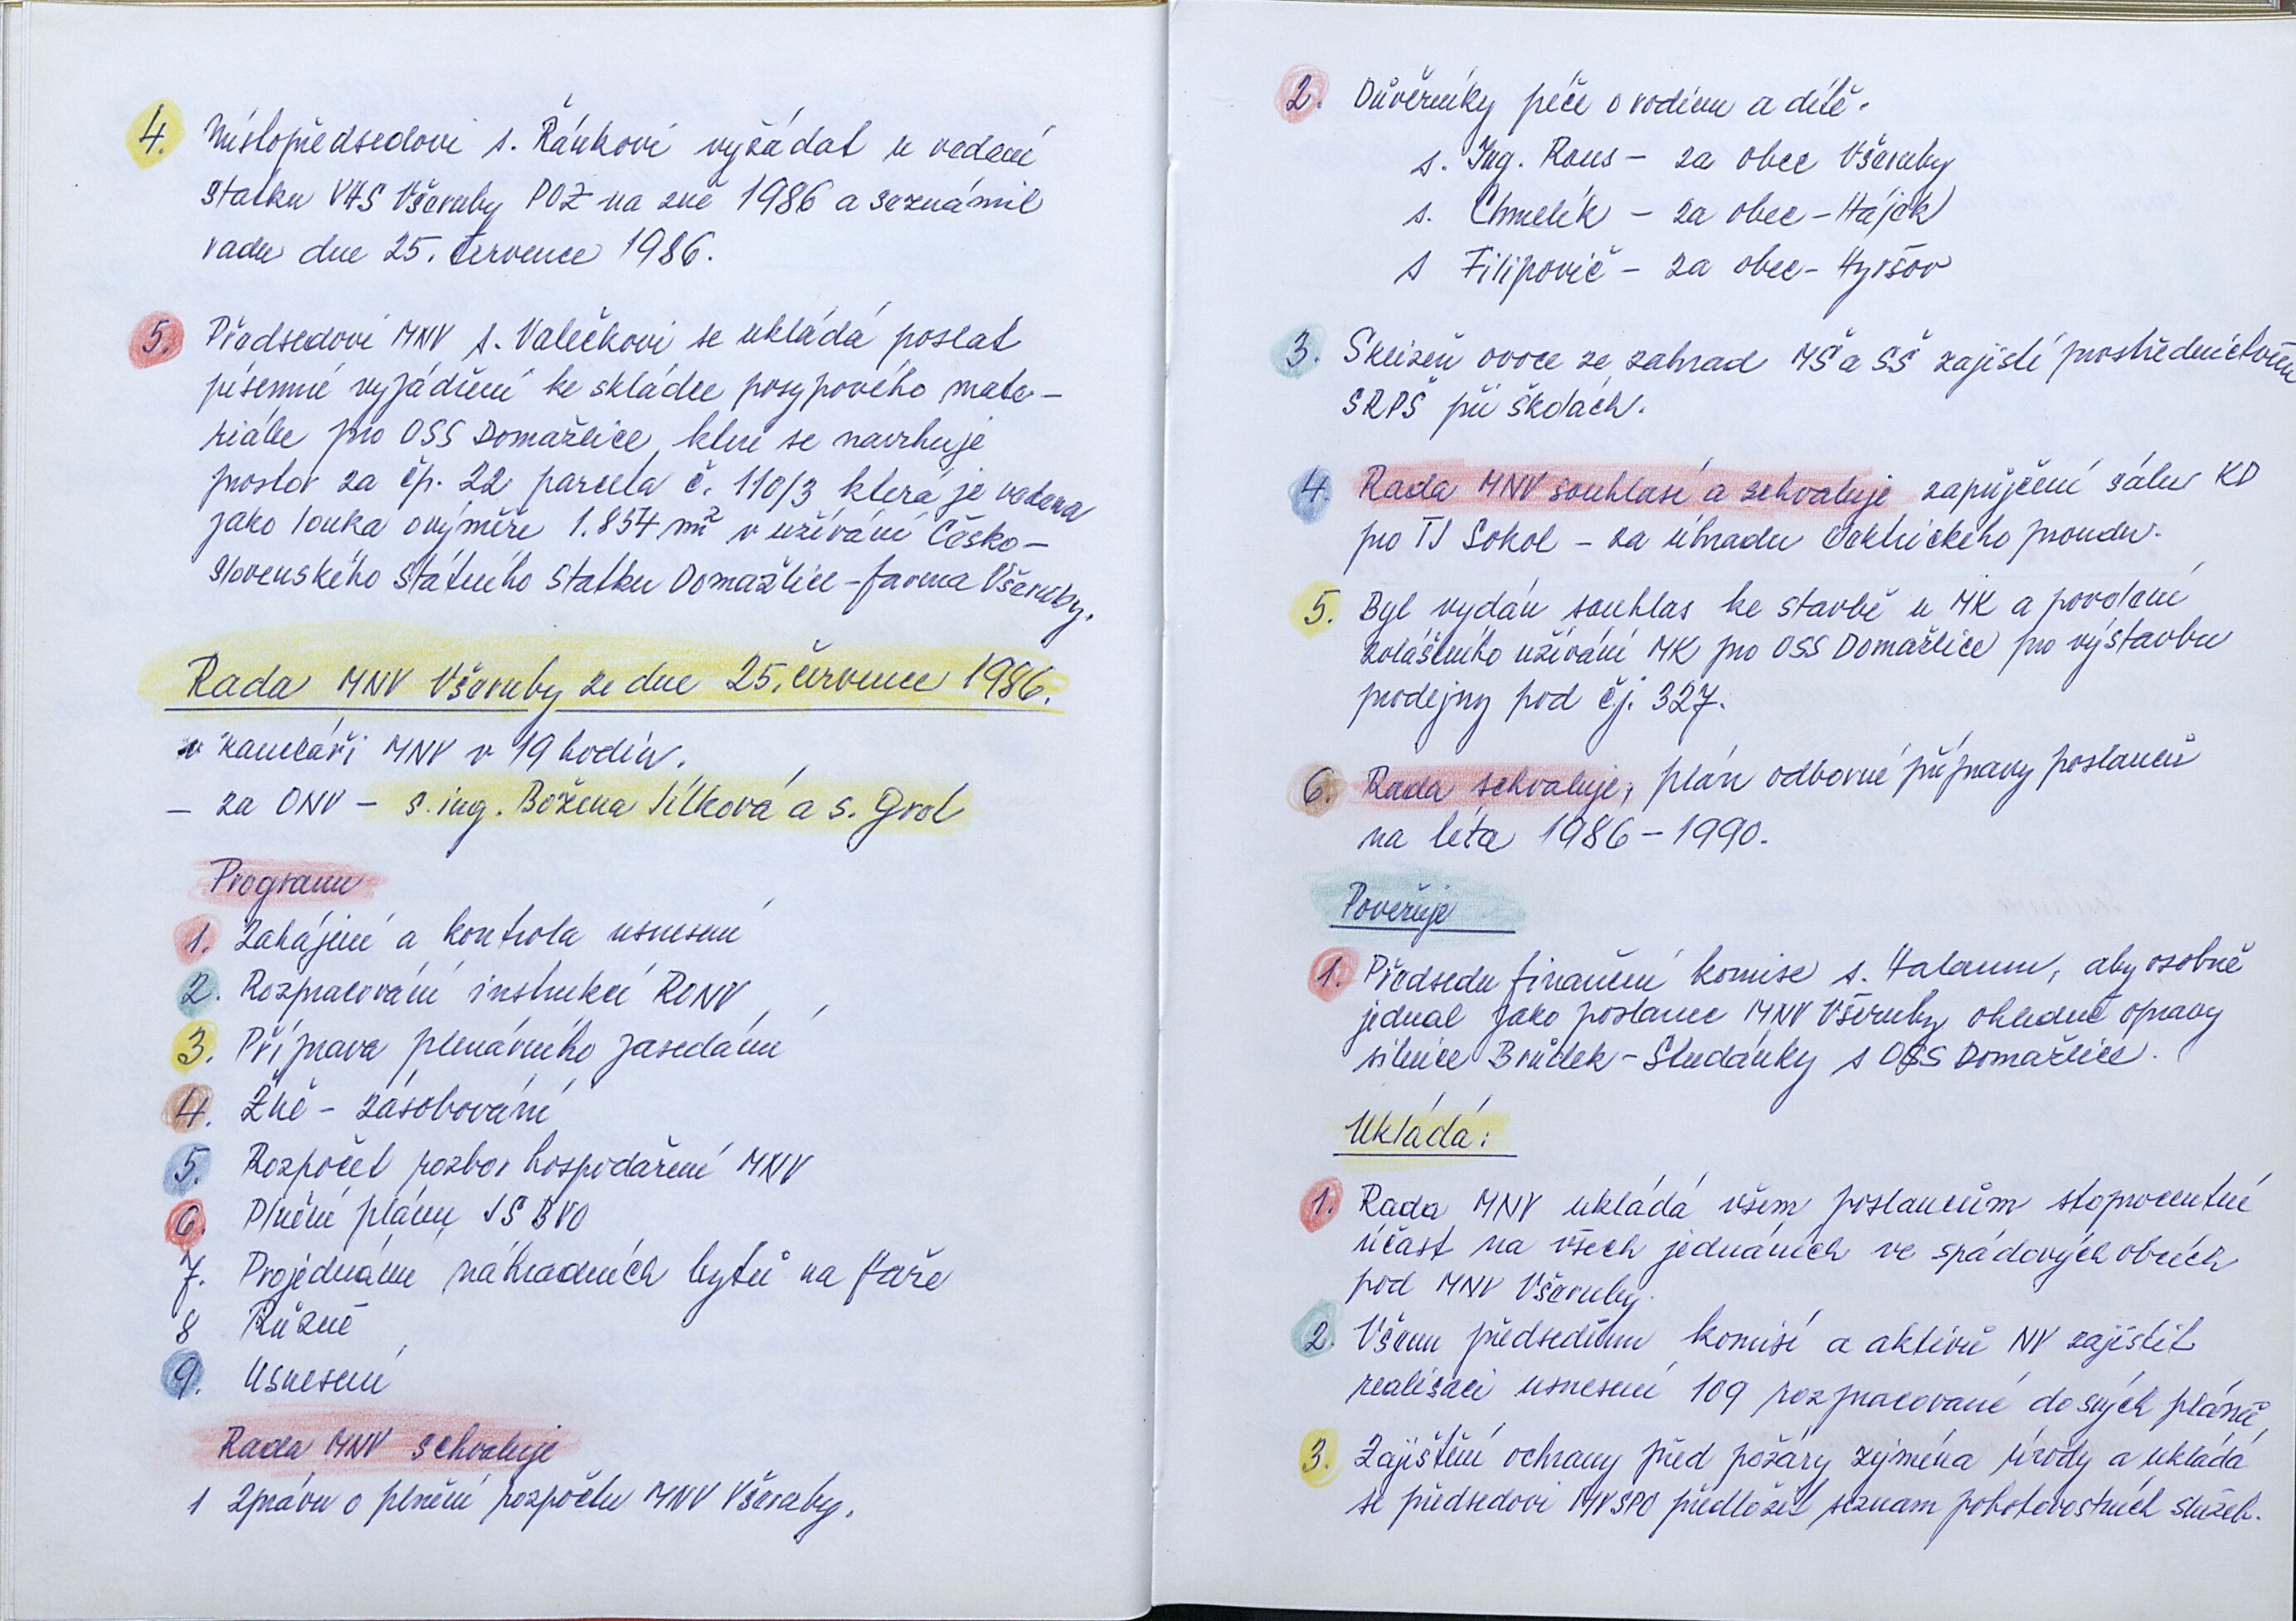 4. Místopředsedovi s. Řánkovi vyžádat u vedení
statku VHS Všeruby POZ na žně 1986 a seznámil
radu dne 25. července 1986.
5. Předsedovi MNV s. Valečkovi se ukládá poslat
písemné vyjádření ke skládce posypového mate-
riálu pro OSS Domažlice, kde se navrhuje
prostor za čp. 22 parcela č. 110/3 která je vedena
jako louka o výměře 1.854 m² v užívání Česko-
slovenského státního statku Domažlice - farma Všeruby.
Rada MNV Všeruby ze dne 25. července 1986.
v kanceláři MNV v 19 hodin.
- za ONV - s. ing. Božena Jílková a s. Grol
Program
1. Zahájení a kontrola usnesení
2. Rozpracování instrukcí RONV
3. Příprava plenárního zasedání
4. Žně - zásobování
5. Rozpočet rozbor hospodaření MNV
6. Plnění plánu JSBVO
7. Projednání náhradních bytů na faře
8 Různé
9. Usnesení
Rada MNV schvaluje
1 Zprávu o plnění rozpočtu MNV Všeruby.
2. Důvěrníky péče o rodinu a dítě.
s. Ing. Rous - za obec Všeruby
s. Chmelík - za obec - Hájek
s Filipovič - za obec - Hyršov
3. Sklizeň ovoce ze zahrad MŠ a SŠ zajistí prostřednictvím
SRPŠ při školách.
4. Rada MNV souhlasí a schvaluje zapůjčení sálu KD
pro TJ Sokol - za úhradu elektrického proudu.
5. Byl vydán souhlas ke stavbě u MK a povolení
zvláštního užívání MK pro OSS Domažlice pro výstavbu
prodejny pod čj. 327.
6. Rada schvaluje, plán odborné přípravy poslanců
na léta 1986 - 1990.
Pověřuje
1. Předsedu finanční komise s. Halamu, aby osobně
jednal jako poslanec MNV Všeruby ohledně opravy
silnice Brůdek - Studánky s OSS Domažlice.
Ukládá:
1. Rada MNV ukládá všem poslancům stoprocentní
účast na všech jednáních ve spádových obcích
pod MNV Všeruby.
2. Všem předsedům komisí a aktivů NV zajistit
realisaci usnesení 109 rozpracované do svých plánů,
3. Zajištění ochrany před požáry zejména úrody a ukládá
se předsedovi MVSPO předložit seznam pohotovostních služeb.